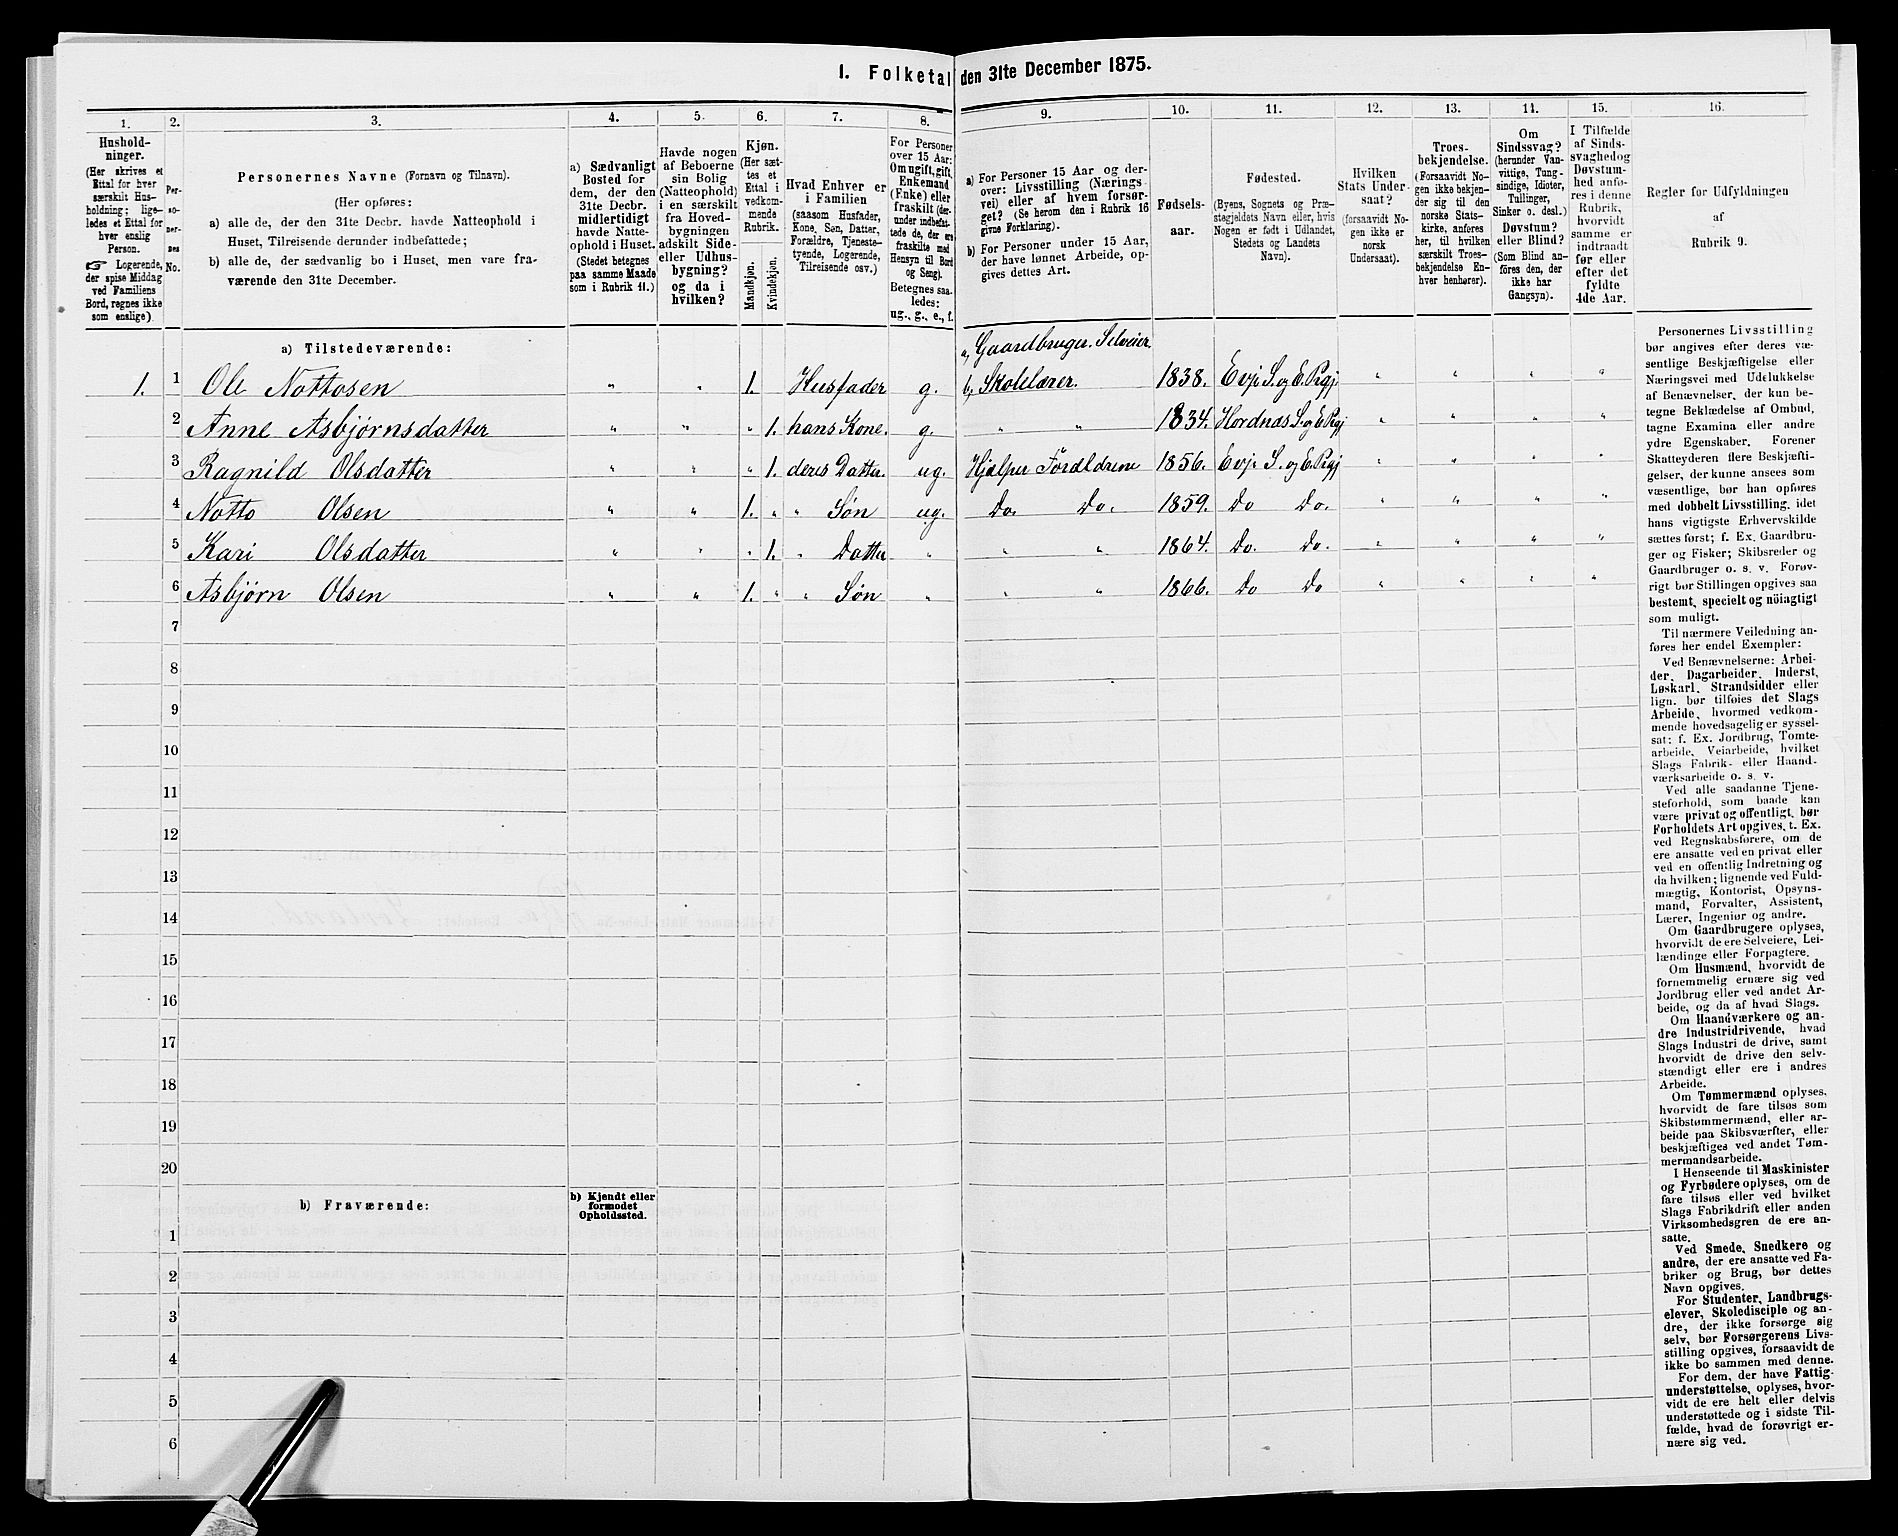 1. Folketal den 31te December 1875.
1. 2. 3. 4. 5. 6. 7. 8. 9. 10. 11. 12. 13. 14. 15. 16.
Hushold-
ninger.
(Her skrives et
Ettal for hver
særskilt Hus-
holdning; lige-
ledes et Ettal for
hver enslig
Person.
☞ Logerende,
der spise Middag
ved Familiens
Bord, regnes ikke
som enslige).
Per-
so-
ner-
nes
No.
Personernes Navne (Fornavn og Tilnavn).
(Her opføres:
a) alle de, der den 31te Decbr. havde Natteophold i
Huset, Tilreisende derunder indbefattede;
b) alle de, der sædvanlig bo i Huset, men vare fra-
værende den 31te December.
a) Sædvanligt
Bosted for
dem, der den
31te Decbr.
midlertidigt
havde Natte-
ophold i Huset.
(Stedet betegnes
paa samme Maade
som i Rubrik 11.)
Havde nogen
af Beboerne
sin Bolig
(Natteophold)
i en særskilt
fra Hoved-
bygningen
adskilt Side-
eller Udhus-
bygning?
og da i
hvilken?
Kjøn.
(Her sæt-
tes et
Ettal i
vedkom-
mende
Rubrik.
Mandkjøn.
Kvindekjøn.
Hvad Enhver er
i Familien
(saasom Husfader,
Kone, Søn, Datter,
Forældre, Tjeneste-
tyende, Logerende,
Tilreisende osv.)
For Personer
over 15 Aar:
Om ugift, gift,
Enkemand
(Enke) eller
fraskilt (der-
under indbefat-
tede de, der ere
fraskilte med
Hensyn til Bord
og Seng).
Betegnes saa-
ledes:
ug., g., e., f.
a) For Personer 15 Aar og der-
over: Livsstilling (Nærings-
vei) eller af hvem forsør-
get? (Se herom den i Rubrik 16
givne Forklaring).
b) For Personer under 15 Aar,
der have lønnet Arbeide, op-
gives dettes Art.
Fødsels-
aar.
Fødested.
(Byens, Sognets og Præ-
stegjeldets Navn eller, hvis
Nogen er født i Udlandet,
Stedets og Landets
Navn).
Hvilken
Stats Under-
saat?
(forsaavidt No-
gen ikke er
norsk
Undersaat).
Troes-
bekjendelse.
(Forsaavidt No-
gen ikke bekjen-
der sig til den
norske Stats-
kirke, anføres
her, til hvilken
særskilt Troes-
bekjendelse En-
hver henhører).
Om
Sindssvag?
(herunder Van-
vittige, Tung-
sindige, Idioter,
Tullinger,
Sinker o. desl.)
Døvstum?
eller Blind?
(Som Blind an-
føres den, der
ikke har
Gangsyn).
I Tilfælde
af Sinds-
svaghedog
Døvstum-
hed anfø-
res i denne
Rubrik,
hvorvidt
samme er
indtraadt
før eller
efter det
fyldte
4de Aar.
Regler for Udfyldningen
af
Rubrik 9.
a) Tilstedeværende:
a, Gaardbruger. Selveier
1. 1 Ole Nottosen " " 1. Husfader g. b, Skolelærer. 1838. Evje S. og E. Prgj. " " " "
2 Anne Asbjørnsdatter " " " 1. hans Kone. g. " " 1834. Hordnæs S. og E Prgj " " " "
3 Ragnild Olsdatter " " " 1. deres Datter. ug. Hjælper Forældrene 1856. Evje S. og E. Prgj " " " "
4 Notto Olsen " " 1. " " Søn ug. Do. Do. 1859. Do Do. " " " "
5 Kari Olsdatter " " " 1. " Datter " " " 1864. Do. Do. " " " "
6 Asbjørn Olsen " " 1. " " Søn " " " 1866. Do Do " " " "
7
8
9
10
11
12
13
14
15
16
17
18
19
20
b) Fraværende:
b) Kjendt eller
formodet
Opholdssted.
1
2
3
4
5
6
Personernes Livsstilling
bør angives efter deres væ-
sentlige Beskjæftigelse eller
Næringsvei med Udelukkelse
af Benævnelser, der kun be-
tegne Beklædelse af Ombud,
tagne Examina eller andre
ydre Egenskaber. Forener
Skatteyderen flere Beskjæfti-
gelser, der kunne ansees som
væsentlige, bør han opføres
med dobbelt Livsstilling, idet
hans vigtigste Erhvervskilde
sættes først; f. Ex. Gaardbru-
ger og Fisker; Skibsreder og
Gaardbruger o. s. v. Forøv-
rigt bør Stillingen opgives saa
bestemt, specielt og nöiagtigt
som muligt.
Til nærmere Veiledning an-
føres her endel Exempler:
Ved Benævnelserne: Arbei-
der, Dagarbeider, Inderst,
Løskarl, Strandsidder eller
lign. bør tilføies det Slags
Arbeide, hvormed vedkom-
mende hovedsagelig er syssel-
sat; f. Ex. Jordbrug, Tomte-
arbeide, Veiarbeide, hvilket
Slags Fabrik- eller Haand-
værksarbeide o. s. v.
Ved alle saadanne Tjene-
steforhold, som baade kan
være privat og offentligt, bør
Forholdets Art opgives, t. Ex.
ved Regnskabsførere, om de
ere ansatte ved en privat eller
ved en offentlig Indretning og
da hvilken; lignende ved Fuld-
mægtig, Kontorist, Opsyns-
mand, Forvalter, Assistent,
Lærer, Ingeniør og andre.
Om Gaardbrugere oplyses,
hvorvidt de ere Selveiere, Lei-
lændinge eller Forpagtere.
Om Husmænd, hvorvidt de
fornemmelig ernære sig ved
Jordbrug eller ved andet Ar-
beide, og da af hvad Slags.
Om Haandværkere og an-
dre Industridrivende, hvad
Slags Industri de drive, samt
hvorvidt de drive den selv-
stændigt eller ere i andres
Arbeide.
Om Tømmermænd oplyses,
hvorvidt de fare tilsøs som
Skibstømmermænd, eller ar-
beide paa Skibsværfter, eller
beskjæftiges ved andet Tøm-
mermandsarbeide.
I Henseende til Maskinister
og Fyrbødere oplyses, om de
fare tilsøs eller ved hvilket
Slags Fabrikdrift eller anden
Virksomhedsgren de ere an-
satte.
Ved Smede, Snedkere og
andre, der ere ansatte ved Fa-
briker og Brug, bør dettes
Navn opgives.
For Studenter, Landbrugs-
elever, Skoledisciple og an-
dre, der ikke forsørge sig
selv, bør Forsørgerens Livs-
stilling opgives, forsaavidt de
ikke bo sammen med denne.
For dem, der have Fattig-
understøttelse, oplyses, hvor-
vidt de ere helt eller delvis
understøttede og i sidste Til-
fælde, hvad de forøvrigt er-
nære sig ved.